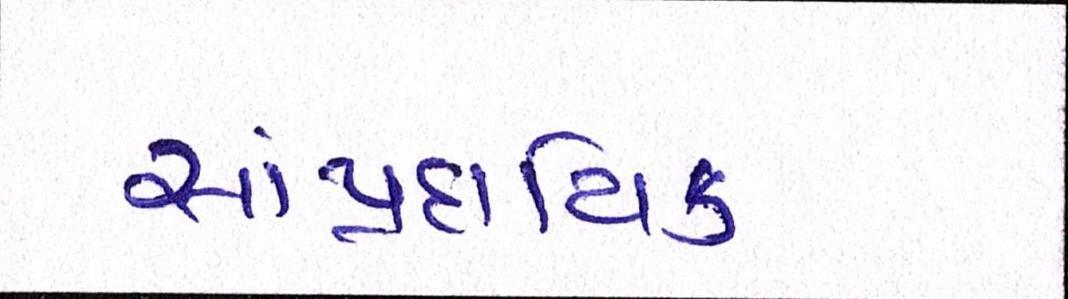 સાંપ્રદાયિક